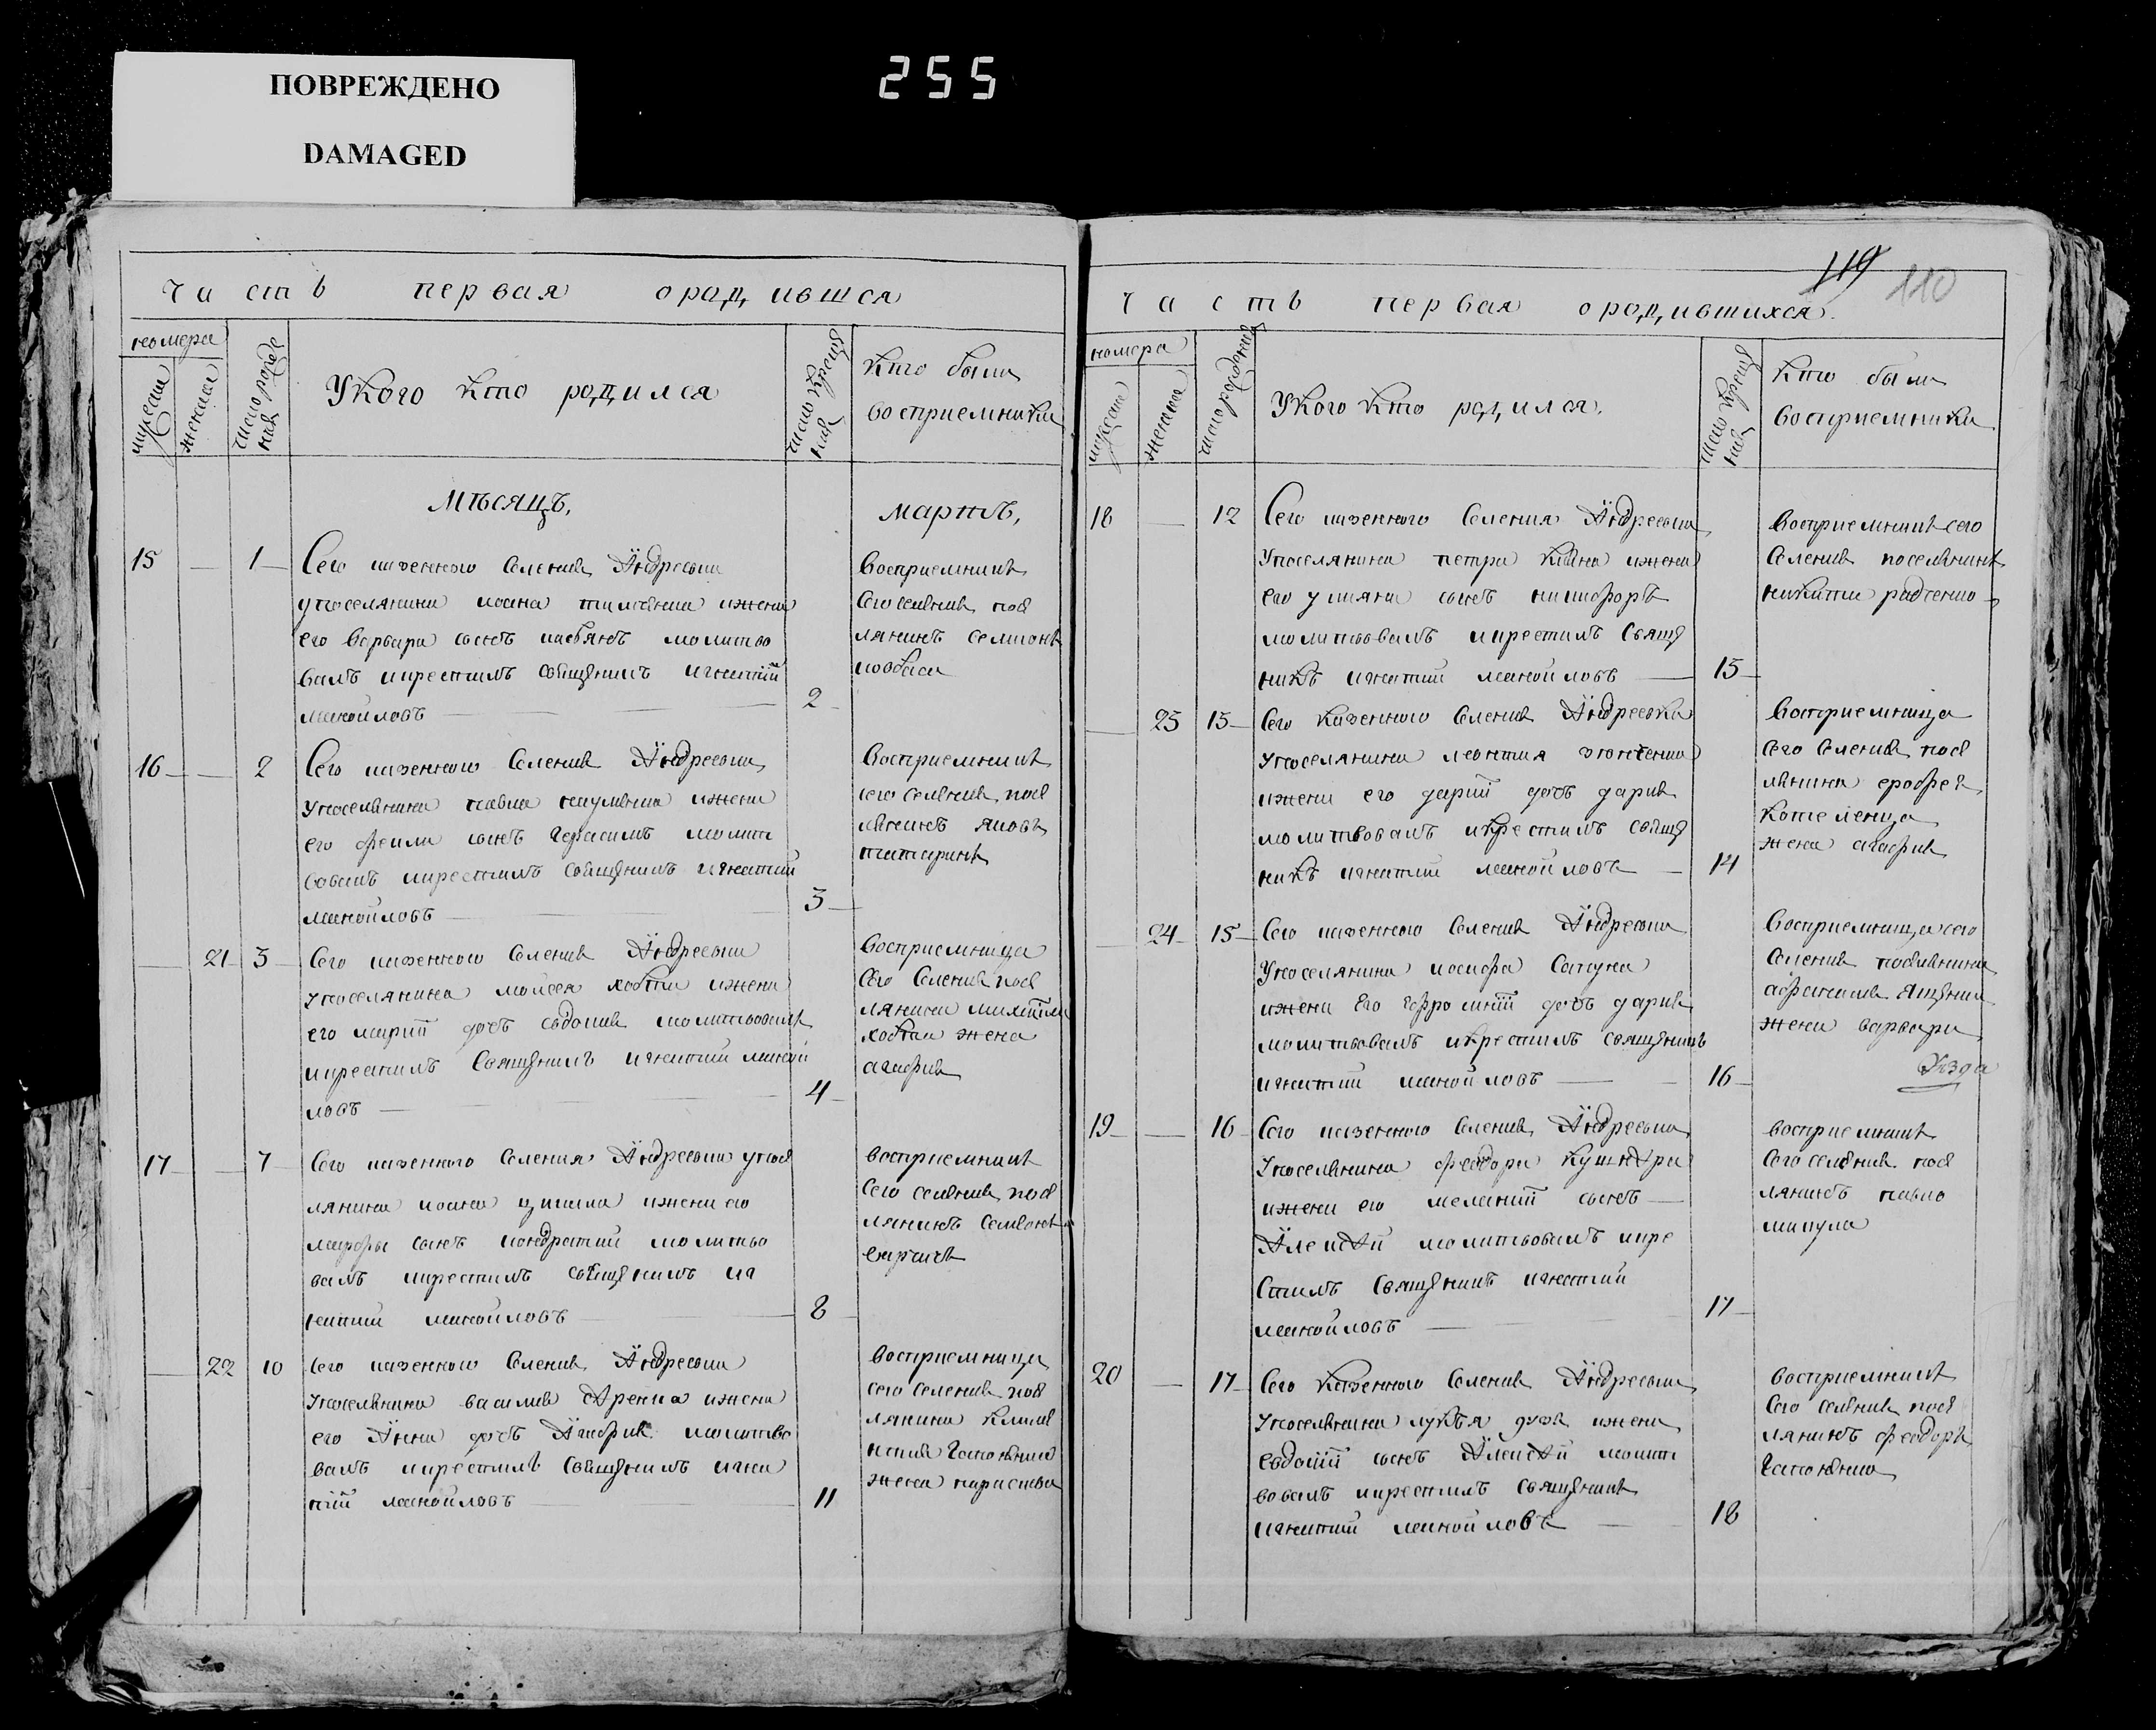 ПОВРЕЖДЕНО
DAMAGED
255
Часть первая ородившся
номера
мужеска
женска
число рожде
нія
Укого кто родился
число креще
нія
кто были
восприемники
Мѣсяцъ,
мартъ,
15 1
Сего казенного Селенія Андреевки
упоселянина иоана ижени
его Варвари сынъ молитво
валъ икрестилъ священикъ игнатій
манойловъ
2
Восприемникъ
Сего селенія посе
лянинъ семионъ
ковбаса
16 2
Сего казенного Селенія Андреевки
упоселянина павла ижени
его феклы сынъ Герасимъ молит
вовалъ икрестилъ священикъ игнатий
манойловъ
3
Восприемникъ
сего селенія посе
лянинъ яковъ
татаринъ
21 3
Сего казенного Селенія Андреевки
упоселянина моисея хобти ижени
его маріи дочь евдокия молитвовалъ
икрестилъ Священикъ игнатий маной
ловъ
4
восприемница
Сего Селенія посе
лянина михаила
хобти жена
агафия
17 7
Сего казенного Селения Андреевки упосе
лянина иоана ижени его
марфы сынъ кондратий молитво
валъ икрестилъ священикъ иг
натий манойловъ
8
восприемникъ
Сего селенія посе
лянинъ Семионъ
22 10
Сего казенного Селенія Андреевки
упоселянина василия ижени
его Анни дочь Агафия молитво
валъ икрестилъ священикъ игна
тій манойловъ
11
восприемница
сего селенія посе
лянина
жена параскева
119 110
Часть первая ородившихся.
номера
мужеска
женска
число рождения
Укого кто родился.
число креще
нія
Кто были
восприемники
18 12
Сего казенного Селения Андреевки
Упоселянина петра ижени
его уляни сынъ никифоръ
молитвовалъ икрестилъ Свяще
никъ игнатий манойловъ
15
Восприемникъ сего
Селенія поселянинъ
никита радченко
25 15
Сего казенного Селенія Андреевки
Упоселянина леонтия
ижени его дарии дочь дария
молитвовалъ икрестилъ свяще
никъ игнатий манойловъ
14
Восприемница
Сего Селенія посе
лянина ерофея
котеленца
жена агафия
24 15
Сего казенного Селенія Андреевки
Упоселянина иосифа Сапуна
ижени Его дочь дария
молитвовалъ икрестилъ священикъ
игнатий манойловъ
16
Восприемница сего
Селенія поселянина
афанасия
жена варвара
19 16
Сего казенного Селенія Андреевки
Упоселянина феодора
ижени его меланіи сынъ
Алексѣй молитвовалъ икре
стилъ Священикъ игнатий
манойловъ
17
восприемникъ
Сего селенія посе
лянинъ павло
микула
20 17
Сего Казенного Селенія Андреевки
Упоселянина ижени
евдокіи сынъ Алексѣй молит
вовалъ икрестилъ священикъ
игнатий манойловъ
18
восприемникъ
Сего селенія посе
лянинъ феодоръ